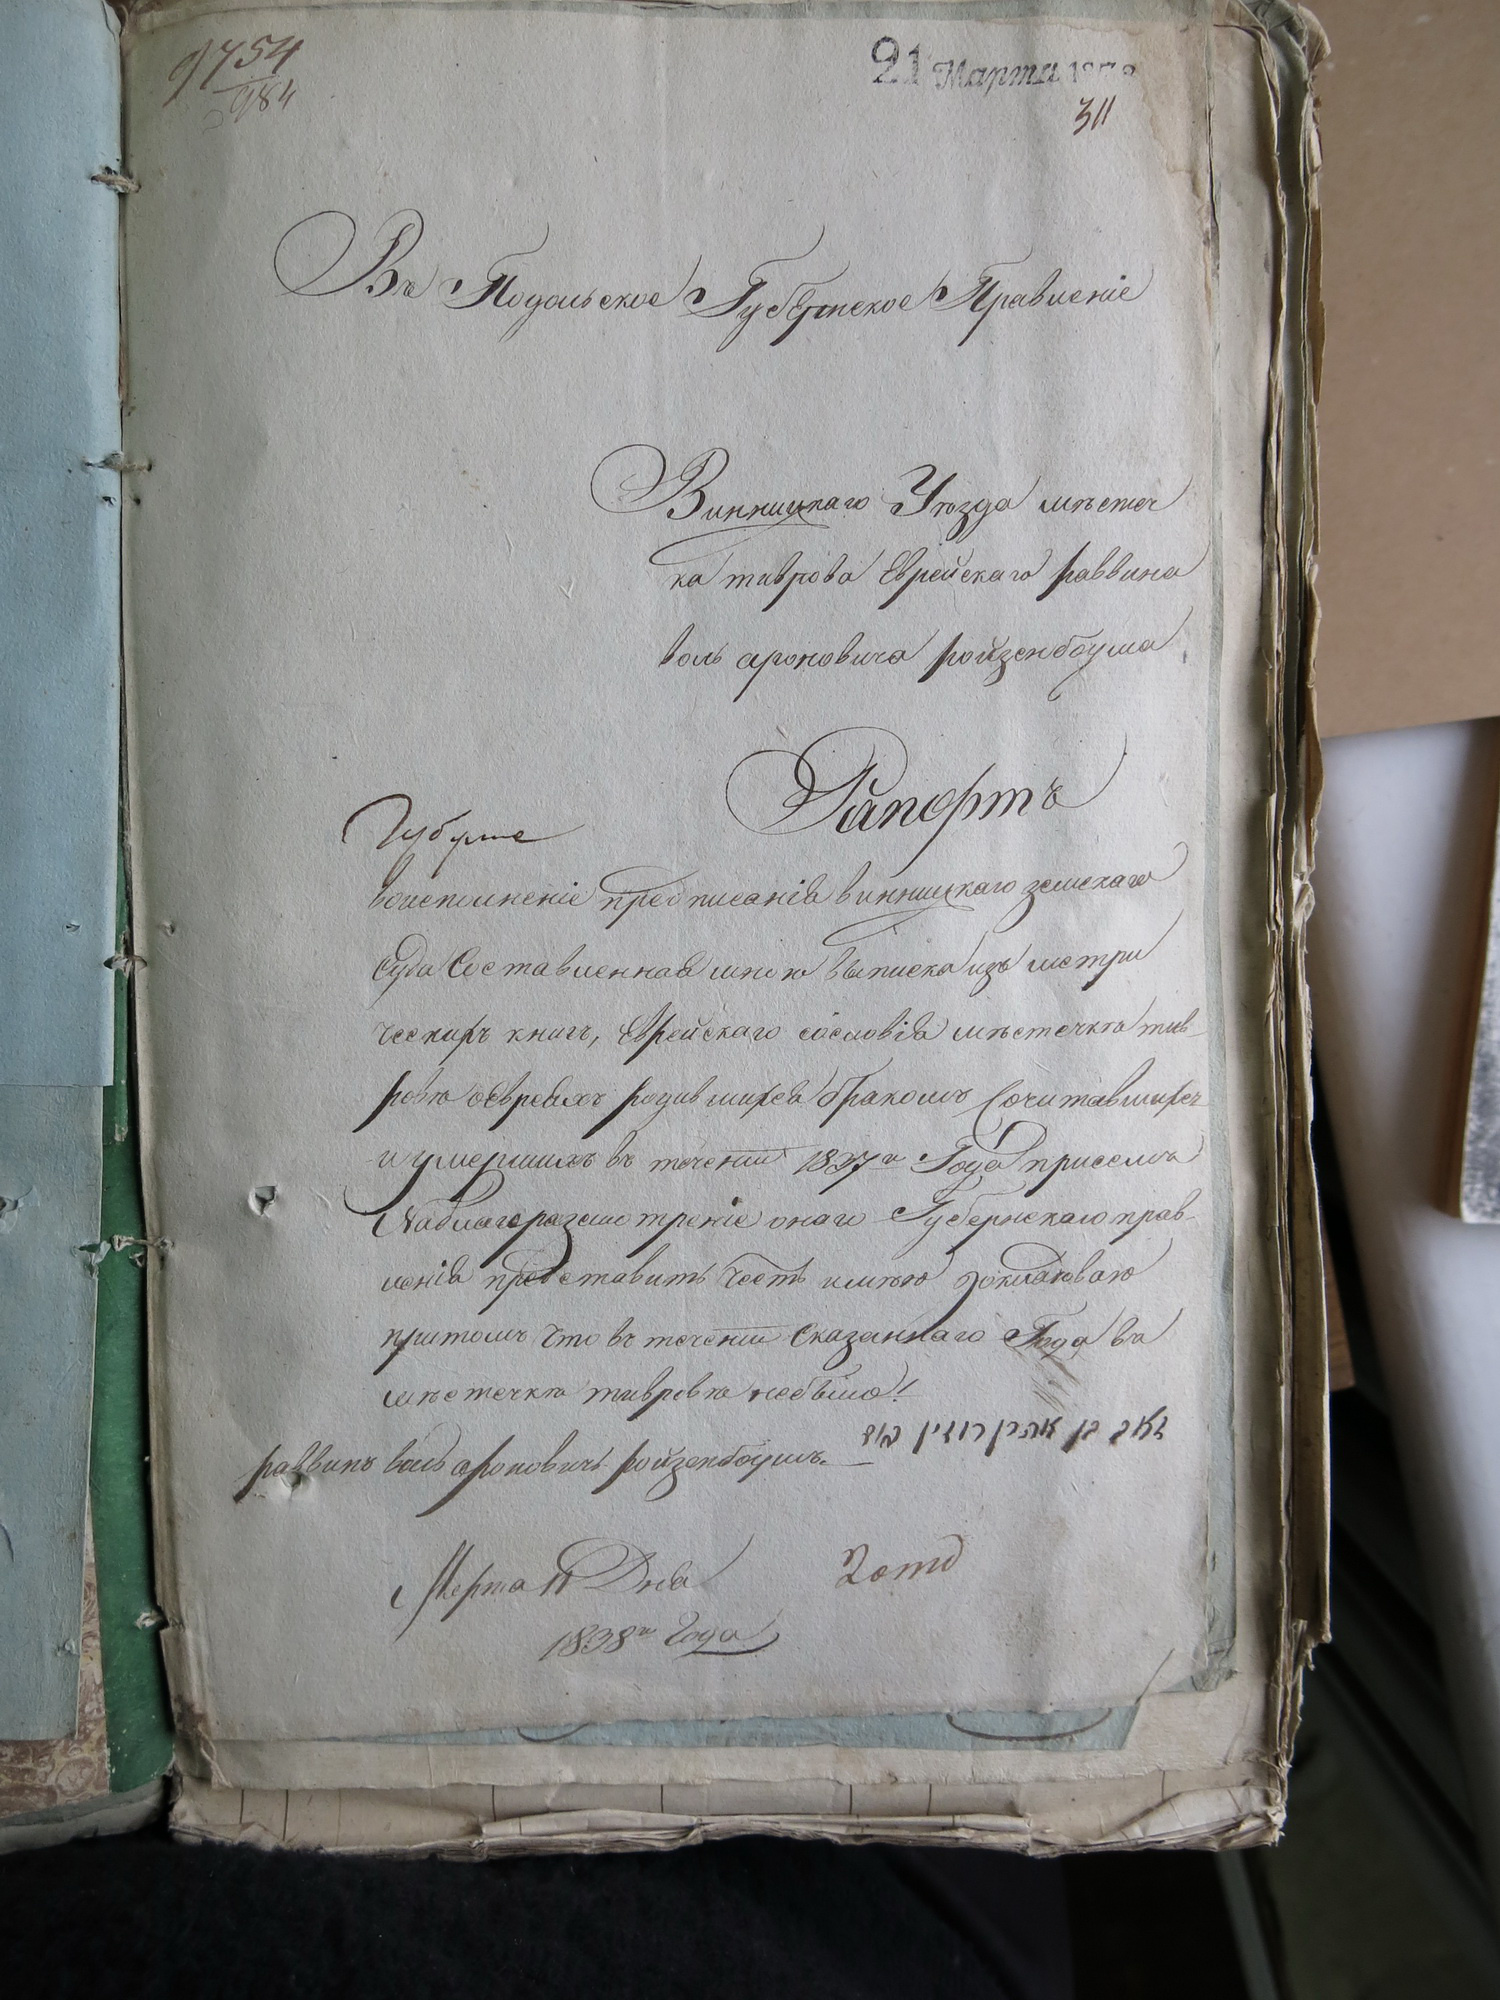 9754
984
21 Марта
311
Въ Подольское Губернское Правленіе
Винницкаго Уѣзда мѣстеч
ка тиврова Еврейскаго раввина
воль ароновича ройзенбоума
Рапортъ
воисполненіе предписанія винницкаго земскаго
Суда Составленная мною выписка изъ метри
ческихъ книгъ, Еврейскаго сословія мѣстечка тив-
ровѣ оЕвреяхъ родившихся бракомъ Сочитавшихся
и умершихъ въ теченіи 1837го Года присемъ
Наблагоразсмотреніе онаго Губернскаго прав-
ленія представить Честь имѣю
притомъ Что въ теченіи Сказаннаго Года въ
мѣстечкѣ тивровѣ небыло!
זאב בן אהרן רויזין בוים
раввинъ воль ароновичъ ройзенбоумъ.
Марта 11 Дня
1838го Года
2 отд